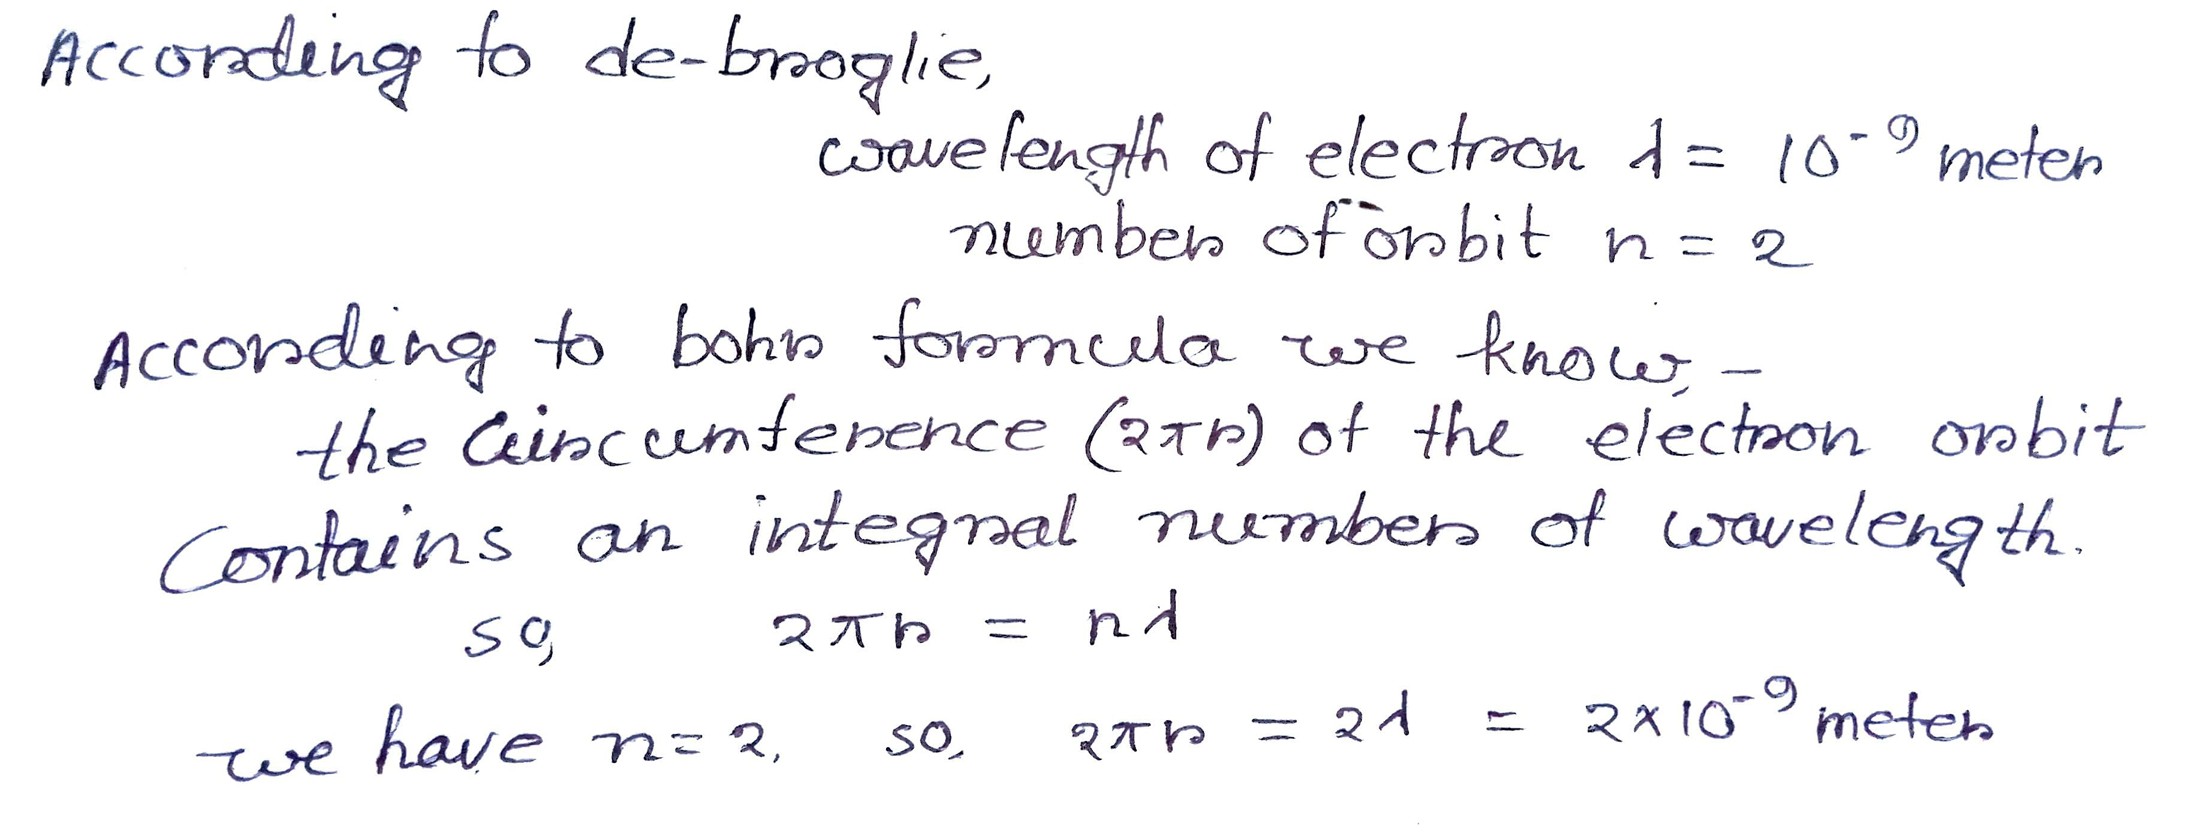 According to de-broglie,
wavelength of electron λ = 10⁻⁹ meter
number of orbit n = 2
According to bohr formula we know, –
the Circumference (2πr) of the electron orbit
Contains an integral number of wavelength.
so, 2πr = nλ
we have n = 2, so, 2πr = 2λ = 2×10⁻⁹ meter